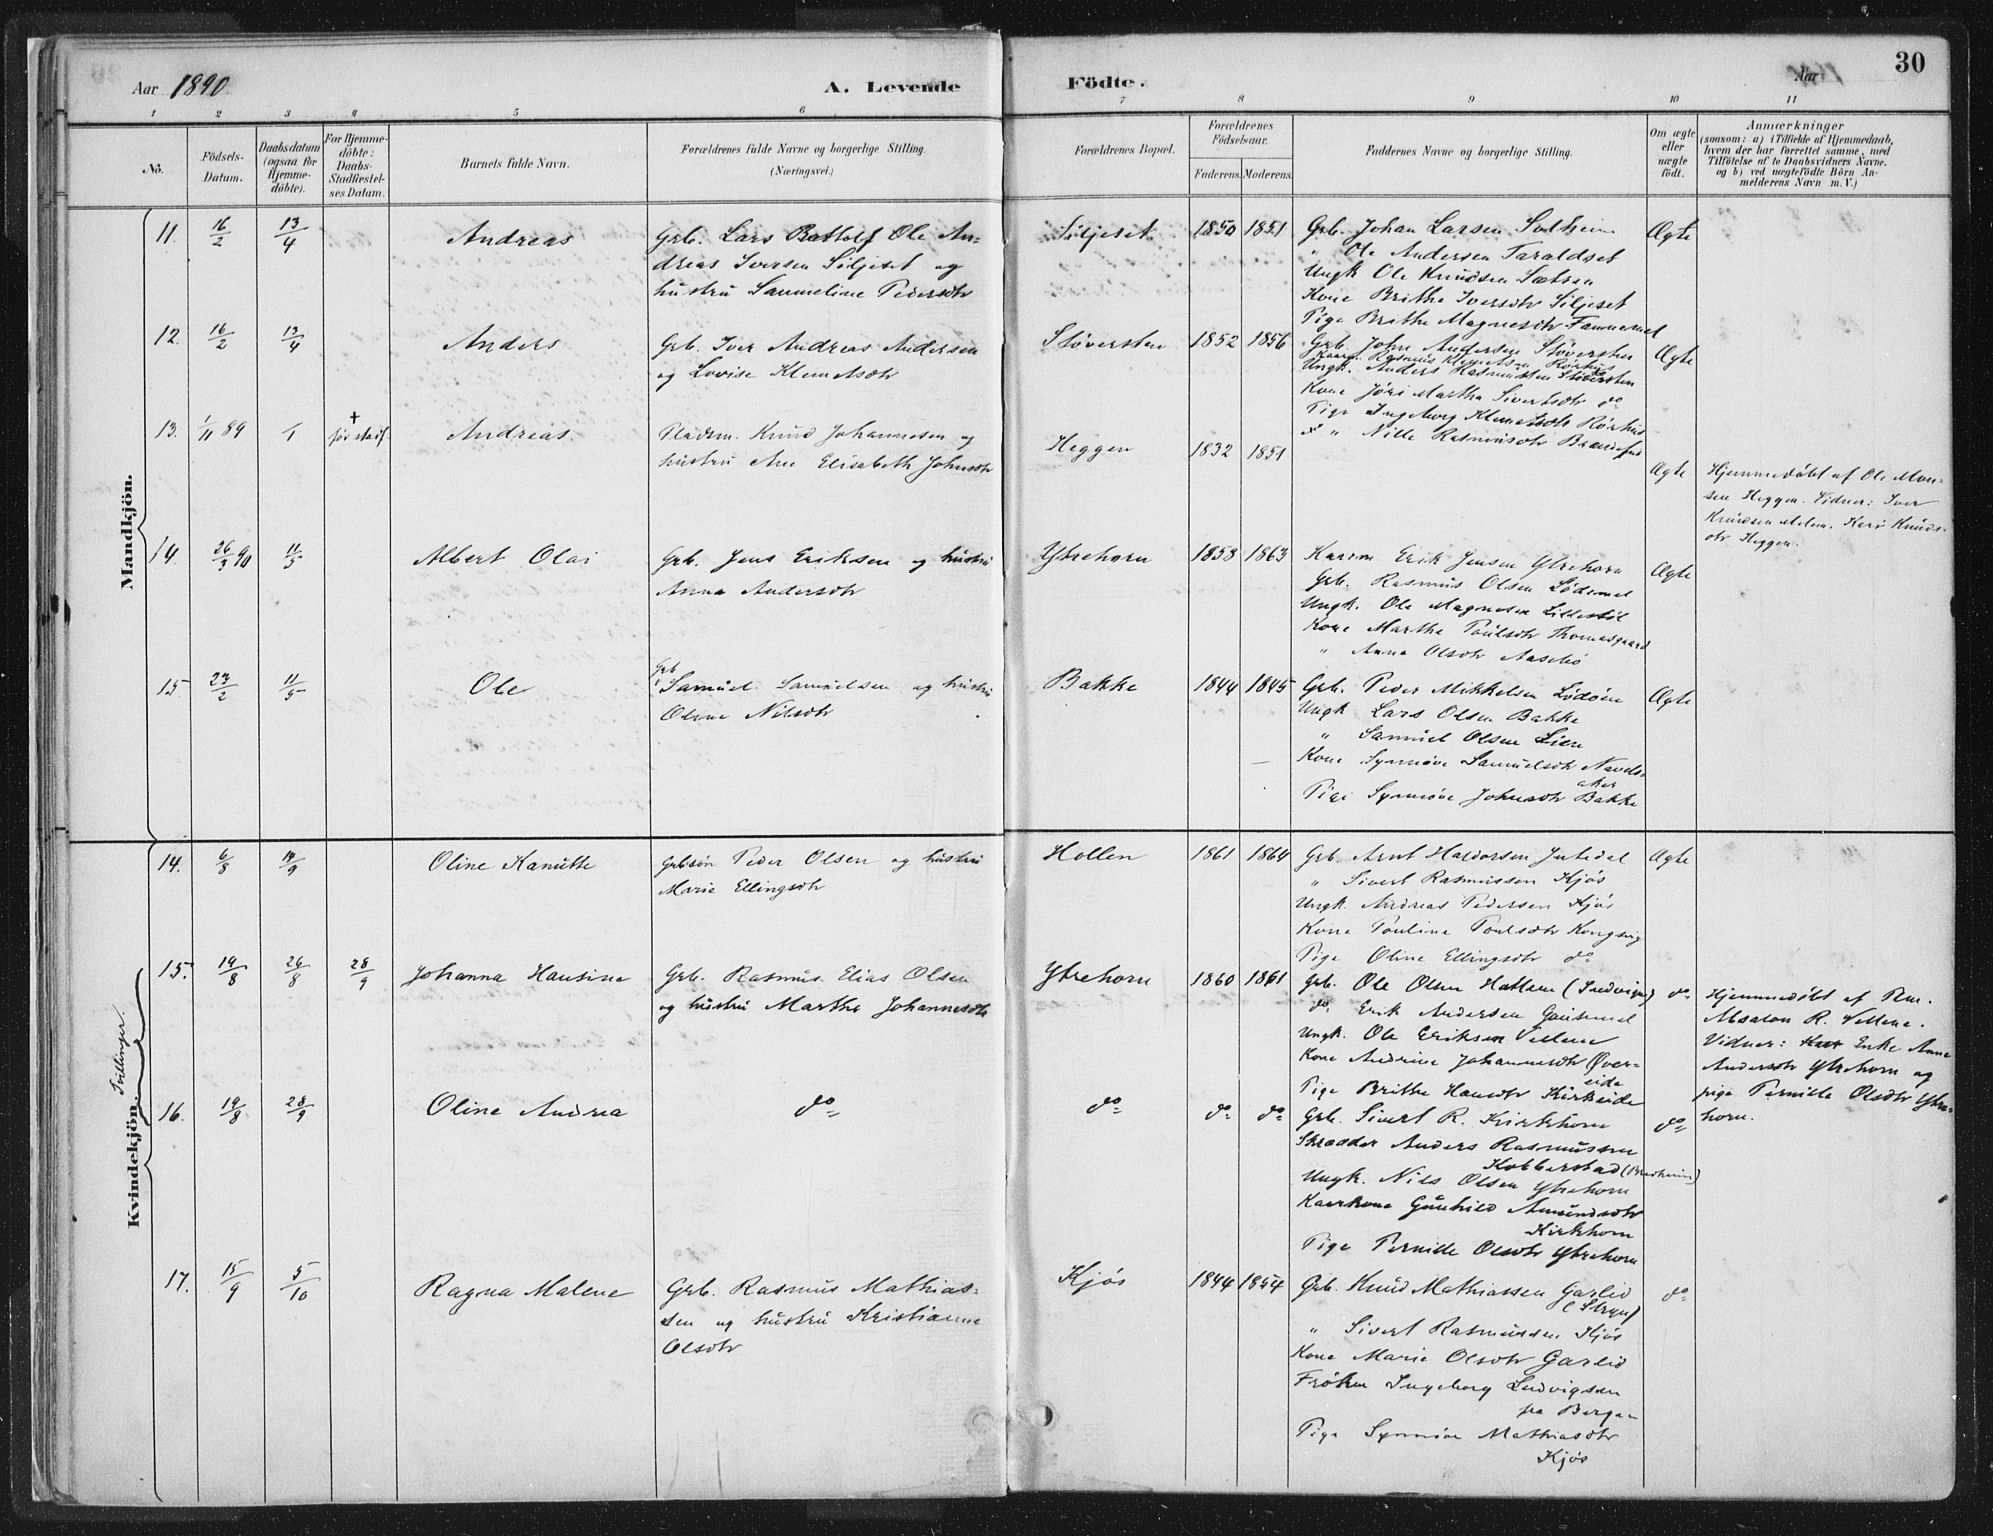 Aar 1890
A. Levende
Födte.
Aar
30
1 2 3 4 5 6 7 8 9 10 11
No.
Födsels-
Datum.
Daabsdatum
(ogsaa for
Hjemme-
döbte).
For Hjemme-
döbte:
Daabs-
Stadfæstel-
ses Datum.
Barnets fulde Navn.
Forældrenes fulde Navne og borgerlige Stilling.
(Næringsvei.)
Forældrenes Bopæl.
Forældrenes
Födselsaar.
Faderens. Moderens.
Faddernes Navne og borgerlige Stilling.
Om ægte
eller
uægte
födt.
Anmærkninger
(saasom: a) i Tilfælde af Hjemmedaab,
hvem der har forrettet samme, med
Tilföielse af to Daabsvidners Navne.
og b) ved uægtefödte Börn An-
melderens Navn m. V.)
Mandkjön.
11. 16/2 13/4 Andreas
Grb. Lars Ole An-
dreas Iversen Siljeset og
hustru Sammeline Pedersdtr
Siljeset 1850 1851
Grb. Johan Larsen Solheim
" Ole Andersen Taraldset
Ungk Ole Knudsen Sætren
Kone Brithe Iversdtr Siljeset
Pige Brithe Magnesdtr Fannemel
Ægte
12. 16/2 13/4 Anders
Grb. Iver Andreas Andersen
og Lovise Klemetsdtr
Støversten 1852 1856
Grb. John Andersen Støversten
Kaarm. Rasmus Klemetsen Rørhus
Ungk. Anders Rasmussen Støversten
Kone Jøri Martha Sivertsdtr do
Pige Ingeborg Klemetsdtr Rørhus
" Nille Rasmusdtr
Ægte
13. 1/11 89 + før stadf. Andreas
Pladsm. Knud Johannesen og
hustru Ane Elisabeth Johnsdtr
Heggen 1832 1851
Ægte
Hjemmedøbt af Ole Mon-
sen Heggen. Vidner: Iver
Knudsen Melem. Kari Knuds-
dtr Heggen.
14 26/3 90 11/5 Albert Olai
Grb. Jens Eriksen og hustru
Anna Andersdtr
Ytrehorn 1858 1863
Kaarm Erik Jensen Ytrehorn
Grb. Rasmus Olsen Lødemel
Ungk. Ole Magnesen Lillestøl
Kone Marthe Poulsdtr Thomasgaard
" Anna Olsdtr Aasebø
Ægte
15 23/2 11/5 Ole
Grb
Samuel Samuelsen og hustru
Oline Nilsdtr
Bakke 1844 1845
Grb. Peder Mikkelsen Lødøen
Ungk Lars Olsen Bakke
" Samuel Olsen Lien
Kone Synnøve Samuelsdtr Navels-
aker
Pige Synnøve Johnsdtr Bakke
Ægte
Kvindekjön.
Tvillinger.
14. 6/8 14/9 Oline Kanutte
Grbsøn Peder Olsen og hustru
Marie Ellingsdtr
Hollen 1861 1864
Grb. Arnt Haldorsen Indedal
" Sivert Rasmussen Kjøs
Ungk. Andreas Pedersen Kjøs
Kone Pouline Poulsdtr Kongsvig
Pige Oline Ellingsdtr do
Ægte
15. 19/8 26/8 28/9 Johanna Hansine
Grb. Rasmus Elias Olsen
og hustru Marthe Johannesdtr
Ytrehorn 1860 1861
Grb. Ole Olsen Hatlem (Indvigen)
do Erik Andersen Gausemel
Ungk. Ole Eriksen Vellene
Kone Andrine Johannesdtr Øver-
eide
Pige Brithe Hansdtr Kirkeide
do
Hjemmedøbt af Em.
Absalon R. Vellene.
Vidner: Enke Anne
Andersdtr Ytrehorn og
pige Pernille Olsdtr Ytre-
horn.
16. 19/8 28/9 Oline Andria
do do do do
Grb. Sivert R. Kirkhorn
Skrædder Anders Rasmussen
Kobberstad
Ungk. Nils Olsen Ytrehorn
Kaarkone Gunhild Amundsdtr
Kirkhorn
Pige Pernille Olsdtr Ytrehorn
do
17. 15/9 5/10 Ragna Malene
Grb. Rasmus Mathias-
sen og hustru Kristianne
Olsdtr
Kjøs 1844 1854
Grb. Knud Mathiassen Garlid
(Stryn)
" Sivert Rasmussen Kjøs
Kone Marie Olsdtr Garlid
Frøken Ingeborg Ludvigsen
fra Bergen
Pige Synnøve Mathiasdtr
Kjøs
do